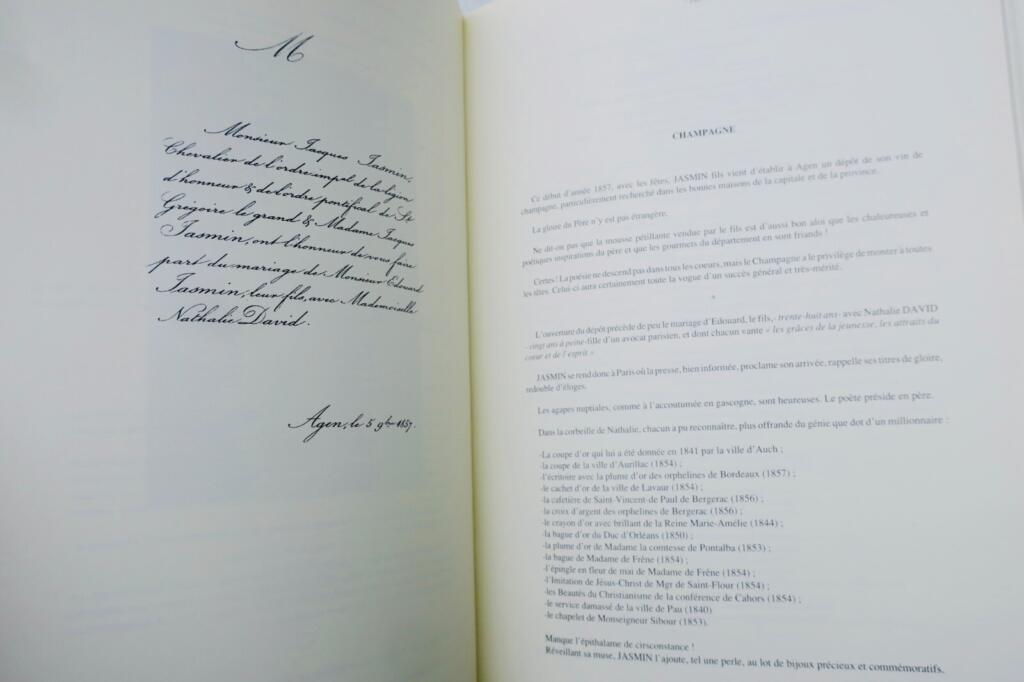 M
Monsieur Jacques Jasmin,
Chevalier de l'ordre impal de la légion
d'honneur & de l'ordre pontifical de St
Grégoire le grand & Madame Jacques
Jasmin, ont l'honneur de vous faire
part du mariage de Monsieur Edouard
Jasmin, leur fils, avec Mademoiselle
Nathalie David.
Agen, le 5 9bre 1857.
CHAMPAGNE
Ce début d'année 1857, avec les fêtes, JASMIN fils vient d'établir à Agen un dépôt de son vin de
champagne, particulièrement recherché dans les bonnes maisons de la capitale et de la province.
La gloire du Père n'y est pas étrangère.
Ne dit-on pas que la mousse pétillante vendue par le fils est d'aussi bon aloi que les chaleureuses et
poétiques inspirations du père et que les gourmets du département en sont friands !
Certes ! La poésie ne descend pas dans tous les coeurs, mais le Champagne a le privilège de monter à toutes
les têtes. Celui-ci aura certainement toute la vogue d'un succès général et très-mérité.
*
L'ouverture du dépôt précède de peu le mariage d'Edouard, le fils,- trente-huit ans- avec Nathalie DAVID
- vingt ans à peine-fille d'un avocat parisien, et dont chacun vante « les grâces de la jeunesse, les attraits du
coeur et de l'esprit »
JASMIN se rend donc à Paris où la presse, bien informée, proclame son arrivée, rappelle ses titres de gloire,
redouble d'éloges.
Les agapes nuptiales, comme à l'accoutumée en gascogne, sont heureuses. Le poète préside en père.
Dans la corbeille de Nathalie, chacun a pu reconnaître, plus offrande du génie que dot d'un millionnaire :
-La coupe d'or qui lui a été donnée en 1841 par la ville d'Auch ;
-la coupe de la ville d'Aurillac (1854) ;
-l'écritoire avec la plume d'or des orphelines de Bordeaux (1857) ;
-le cachet d'or de la ville de Lavaur (1854) ;
-la cafetière de Saint-Vincent-de Paul de Bergerac (1856) ;
-la croix d'argent des orphelines de Bergerac (1856) ;
-le crayon d'or avec brillant de la Reine Marie-Amélie (1844) ;
-la bague d'or du Duc d'Orléans (1850) ;
-la plume d'or de Madame la comtesse de Pontalba (1853) ;
-la bague de Madame de Frêne (1854) ;
-l'épingle en fleur de mai de Madame de Frêne (1854) ;
-l'Imitation de Jésus-Christ de Mgr de Saint-Flour (1854) ;
-les Beautés du Christianisme de la conférence de Cahors (1854) ;
-le service damassé de la ville de Pau (1840)
-le chapelet de Monseigneur Sibour (1853).
Manque l'épithalame de cirsconstance !
Réveillant sa muse, JASMIN l'ajoute, tel une perle, au lot de bijoux précieux et commémoratifs.